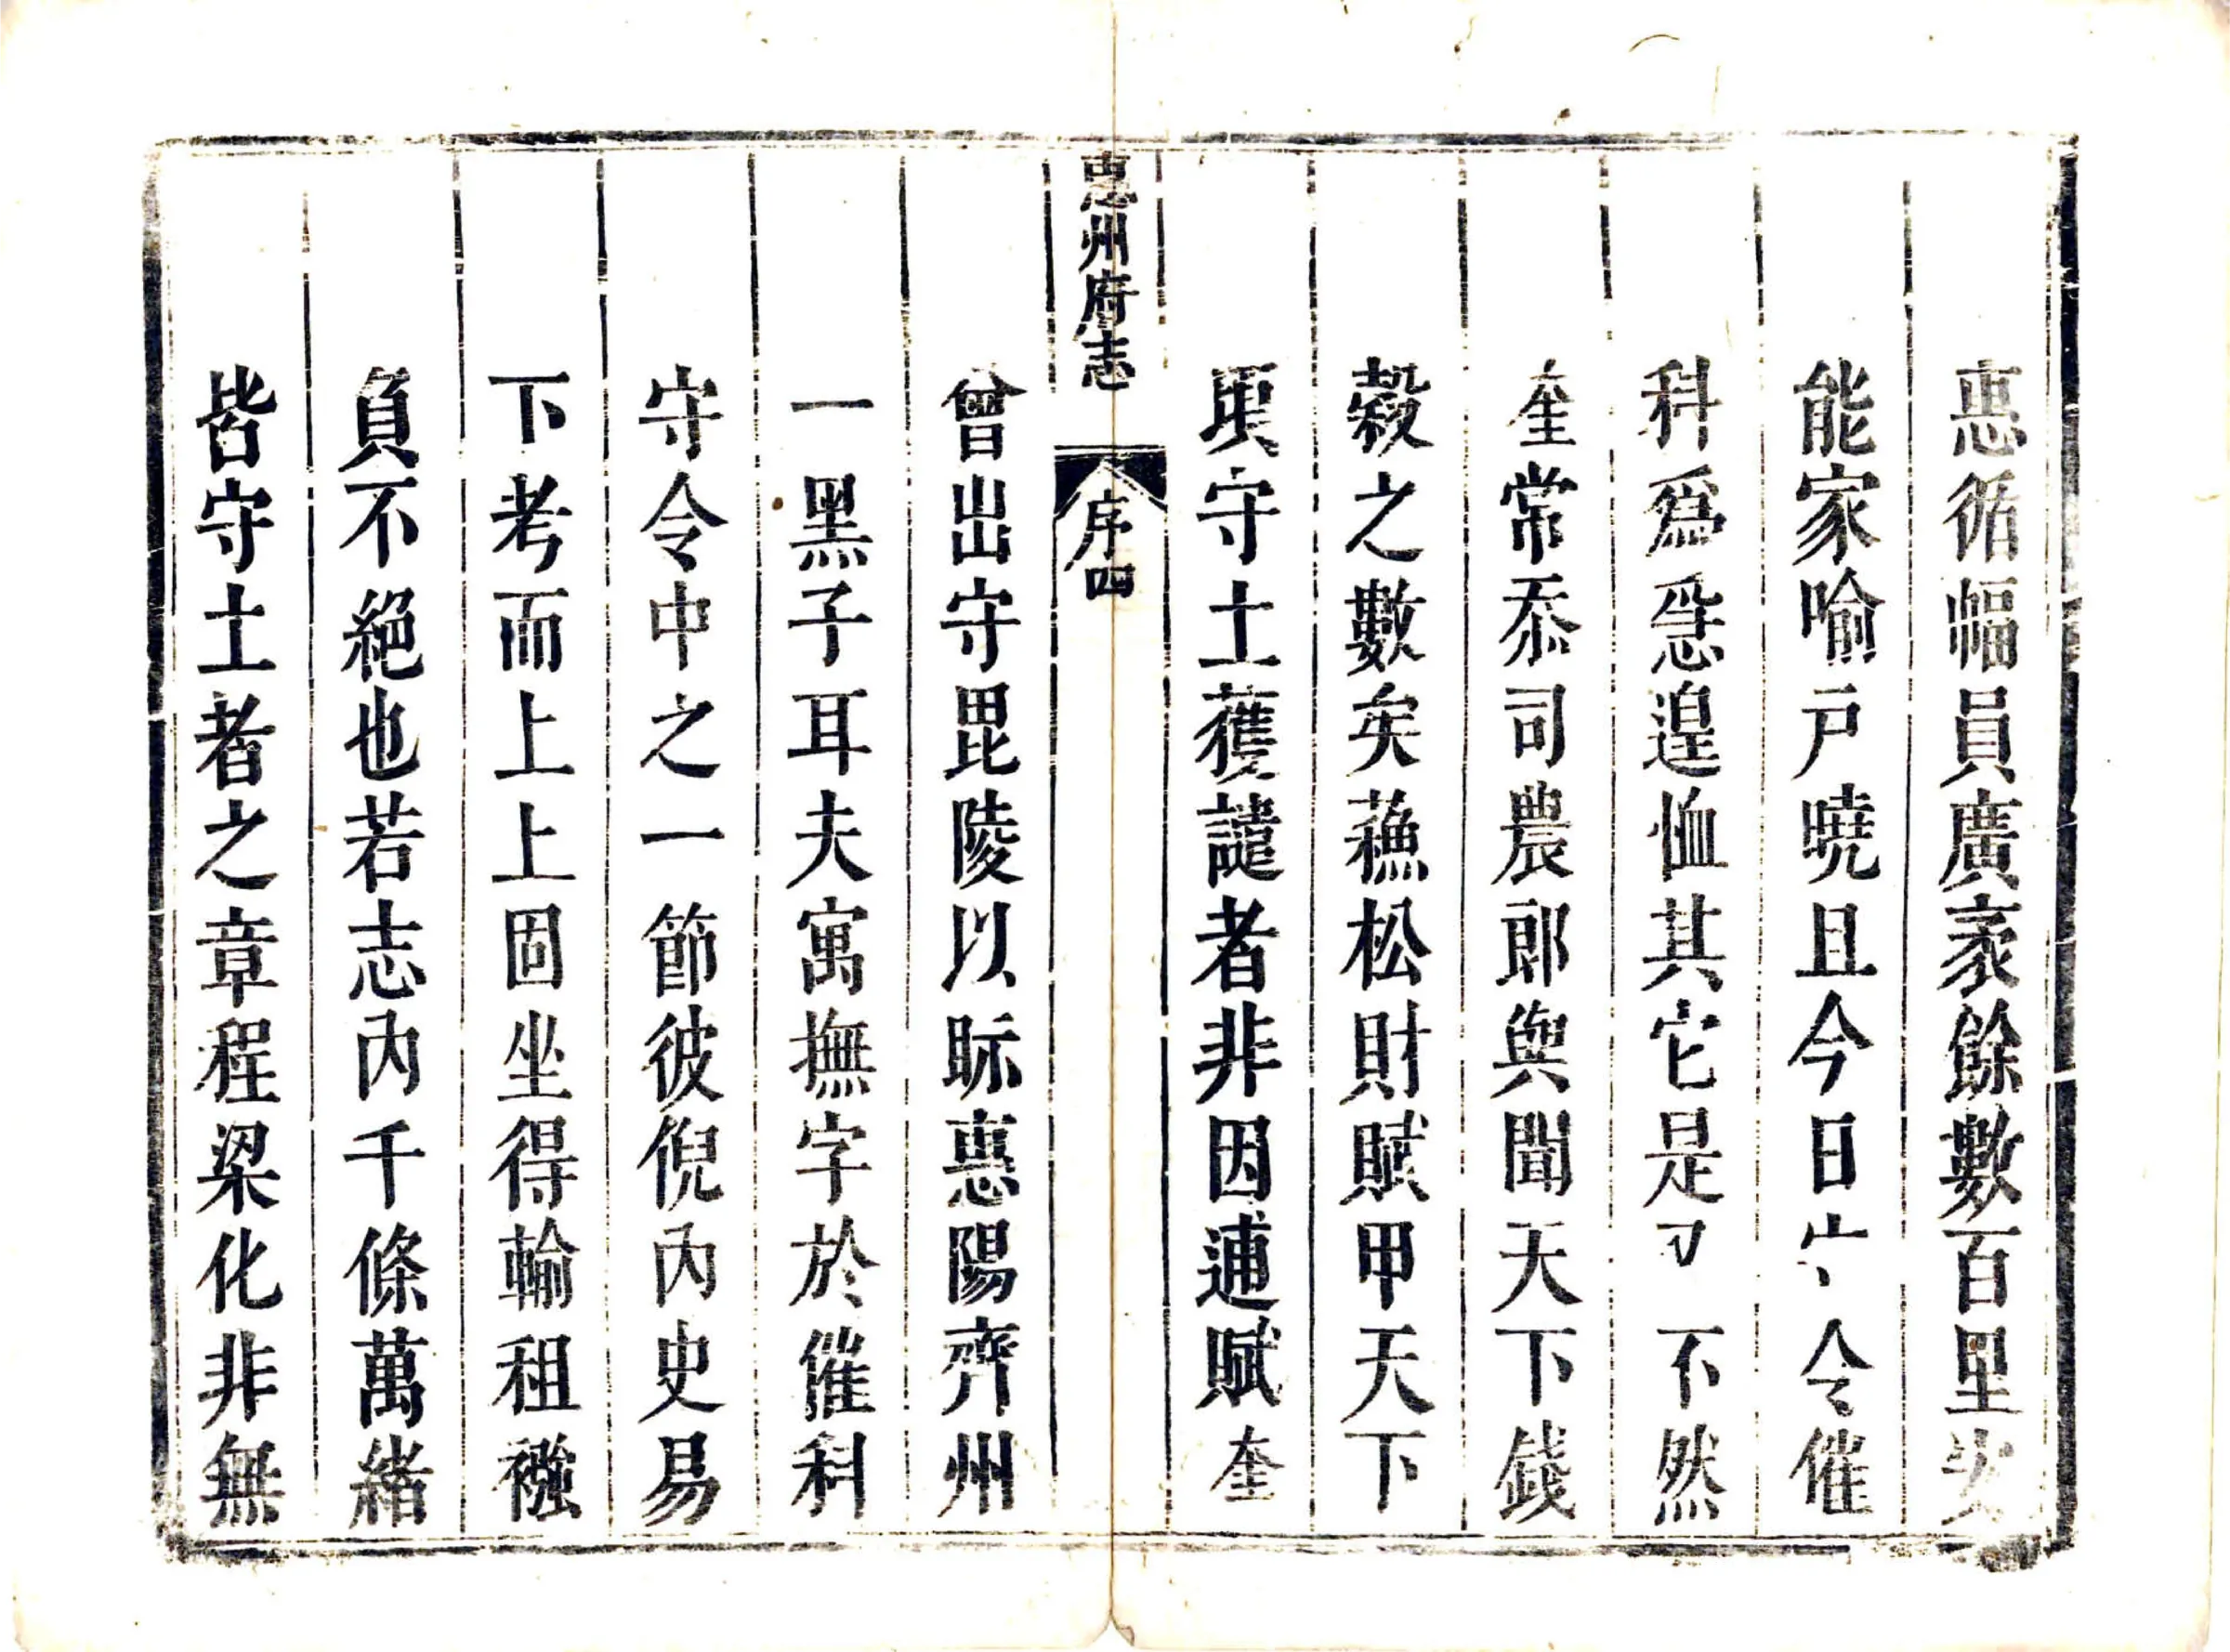 惠循幅員廣袤餘數百里
能家喻戸曉且今日守令催
科爲亟遑恤其它是不然
奎常忝司農郎與聞天下錢
穀之數矣蘓松財賦甲天下
頃守土獲譴者非因逋賦奎
惠州府志
序四
曾出守毘陵以眎惠陽齊州
一黑子耳夫寓撫字於催科
守令中之一節彼倪內史易
下考而上上固坐得輸租襁
負不絕也若志內千條萬緒
皆守土者之章程梁化非無